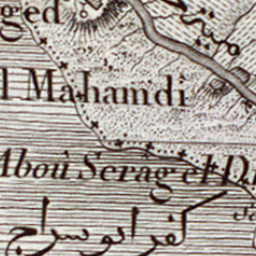 ged
l Mahamdi
Abou Serag el D
كفر ابو سراج